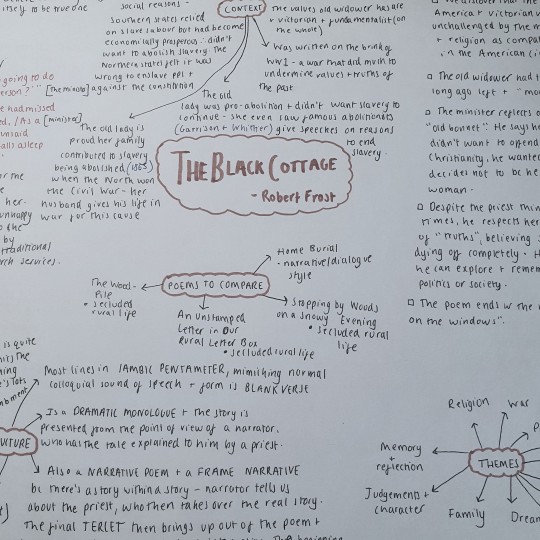 itself to be true one
social reasons -
Southern states relied
on slave labour but had become
economically prosperous : didn't
want to abolish slavery. The
Northern stats felt it was
wrong to enslave ppl +
against the constitution
going to do
person?'" [the minister]
e had missed
d. / As a [minister]
unsaid
alls asleep
CONTEXT
The values old widower has are
• victorian + fundamentalist (on
the whole)
Was written on the brink of
WW1 - a war that did myth to
undermine values + truths of
the past
The old
lady was pro-abolition + didn't want slavery to
continue - she even saw famous abolitionists
(Garrison + Whittier) give speeches on reasons
to end
slavery.
The old lady is
proud her family
contributed to slavery
being abolished (1865)
when the North won
the Civil War - her
husband gives his life in
war for this cause
for me
the
her-
unhappy
to the
by
traditional
rch services.
THE BLACK COTTAGE
- Robert Frost
America + victorian v
unchallenged by the m
+ religion as compat
in the American Ci
□ The old widower had t
long ago left + "mo
□ The minister reflects o
"old bonnet". He says h
didn't want to offend
Christianity, he wante
decides not to bc he
woman.
□ Despite the priest thin
times, he respects her
of "truths", believing s
dying off completely. H
he can explore + reme
politics or society.
□ The poem ends w the
on the windows".
POEMS TO COMPARE
Home Burial
- narrative/dialogue
style
The Wood-
Pile
• secluded
rural life
An Unstamped
Letter in Our
Rural Letter Box
• secluded rural life
Stopping by Woods
on a Snowy Evening
• secluded rural
life
is quite
Most lines in IAMBIC PENTAMETER, mimicking normal
colloquial sound of speech + form is BLANK VERSE
Is a DRAMATIC MONOLOGUE + the story is
presented from the point of view of a narrator,
who has the tale explained to him by a priest.
UCTURE
Also a NARRATIVE POEM + a FRAME NARRATIVE
bc there's a story within a story - narrator tells us
about the priest, who then takes over the real story.
The final TERCET then brings up out of the poem +
THEMES
Religion
War
Memory
+
reflection
Judgement +
character
Family
Dream